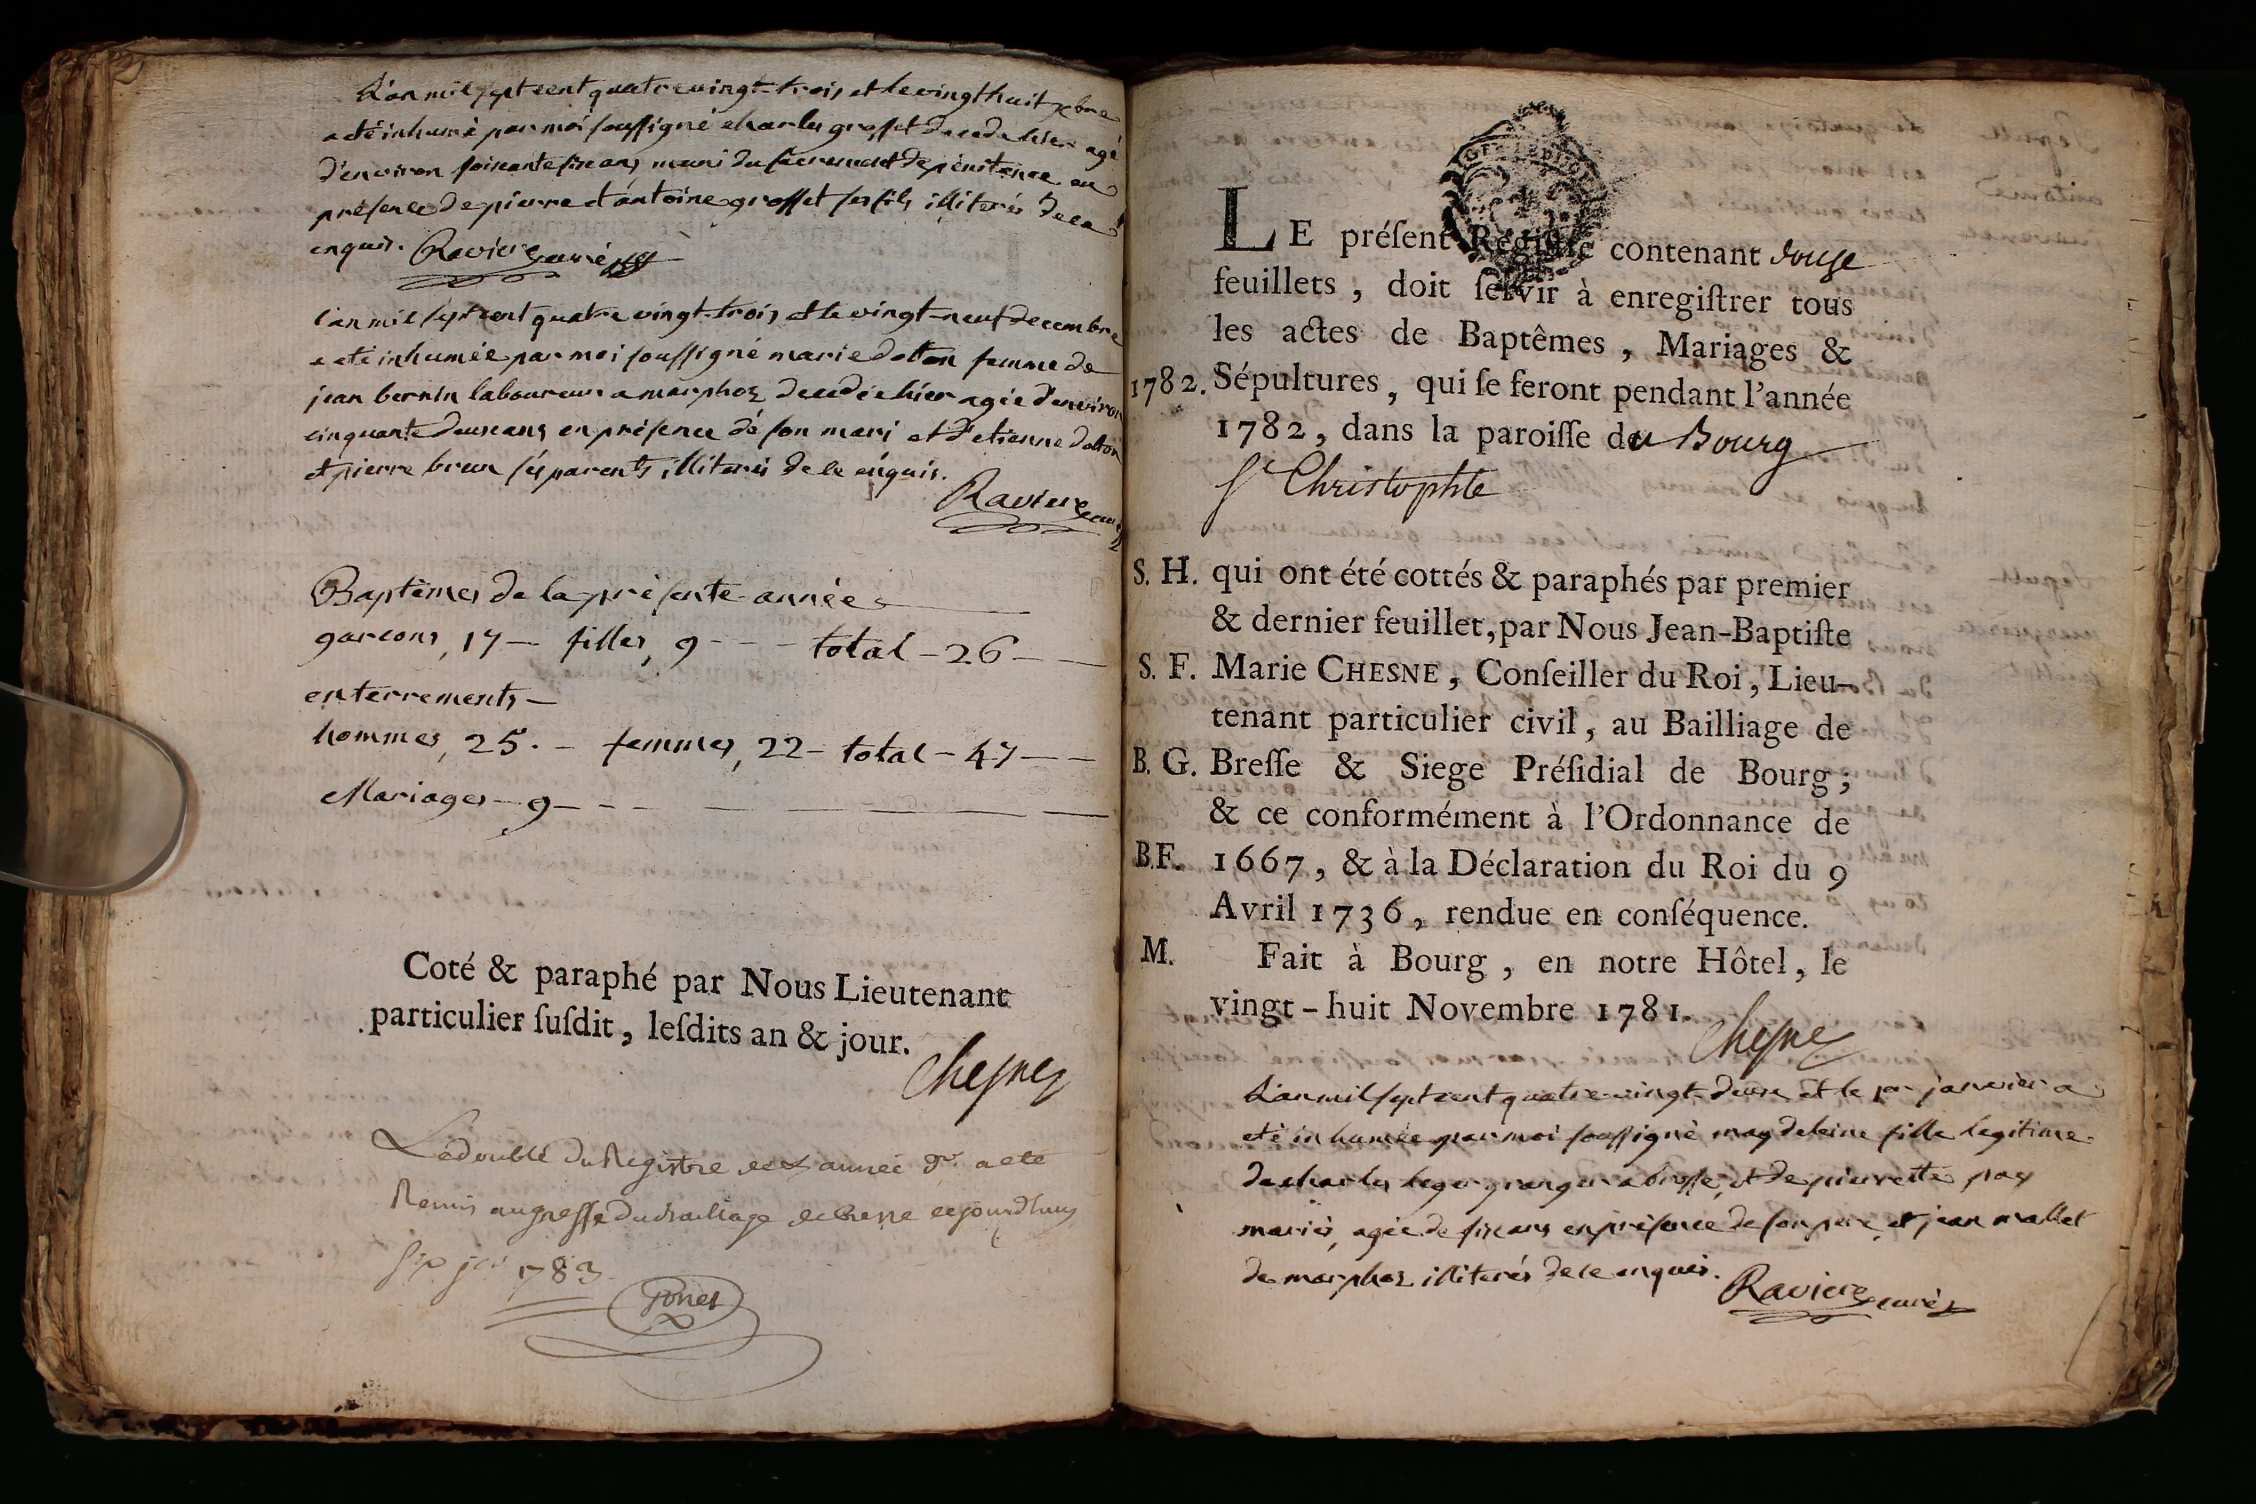 L'an mil sept cent quatre vingt-trois et le vingt huit xbre
a eté inhumé par moi soussigné charles grosset decedé hier agé
d'environ soixante six ans muni du sacrement de pénitence en
présence de pierre et antoine grosset ses fils illiterés de ce
enquis. Raviere curé
L'an mil sept cent quatre vingt-trois et le vingt-neuf decembre
a eté inhumée par moi soussigné marie dotton femme de
jean bernin laboureur a morphoz decedée hier agée d'environ
cinquante deux ans en présence de son mari et d'etienne dotton
et pierre brun ses parents illiterés de ce enquis.
Raviere curé
Baptêmes de la présente année
garcons, 17 — filles, 9 - - - total - 26 — —
enterrements —
hommes, 25. — femmes, 22 — total — 47 — —
Mariages — 9 — - - —
Coté & paraphé par Nous Lieutenant
particulier ſuſdit, leſdits an & jour.
Chesne
Le double du Registre de l'année dre a eté
Remis au greffe du Bailliage de Bresse cejourd'huy
six jer 1783
LE préſent Regiſtre contenant douze
feuillets, doit ſervir à enregiſtrer tous
les actes de Baptêmes, Mariages &
1782. Sépultures, qui ſe feront pendant l'année
1782, dans la paroiſſe du Bourg
St Christophle
S. H. qui ont été cottés & paraphés par premier
& dernier feuillet, par Nous Jean-Baptiſte
S. F. Marie CHESNE, Conſeiller du Roi, Lieu-
tenant particulier civil, au Bailliage de
B. G. Breſſe & Siege Préſidial de Bourg;
& ce conformément à l'Ordonnance de
B.F. 1667, & à la Déclaration du Roi du 9
Avril 1736, rendue en conſéquence.
M. Fait à Bourg, en notre Hôtel, le
vingt-huit Novembre 1781.
Chesne
L'an mil sept cent quatre-vingt-deux et le 1er janvier a
eté inhumée par moi soussigné magdeleine fille legitime
de charles leger granger a brosse, et de pierrette pay
mariés, agée de six ans en présence de son pere, et jean mallet
de morphoz illiterés de ce enquis.
Raviere curé